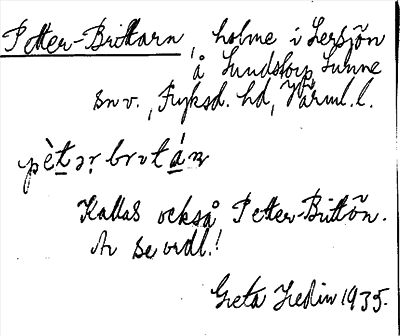 Petter-Brittarn, holme i Lersjön
å Lundstorp, Sunne
sn v., Fryksd. hd, Värml. l.
pètər británn
Kallas också Petter-Brittön.
Av se ordl.!
Greta Hedin 1935.